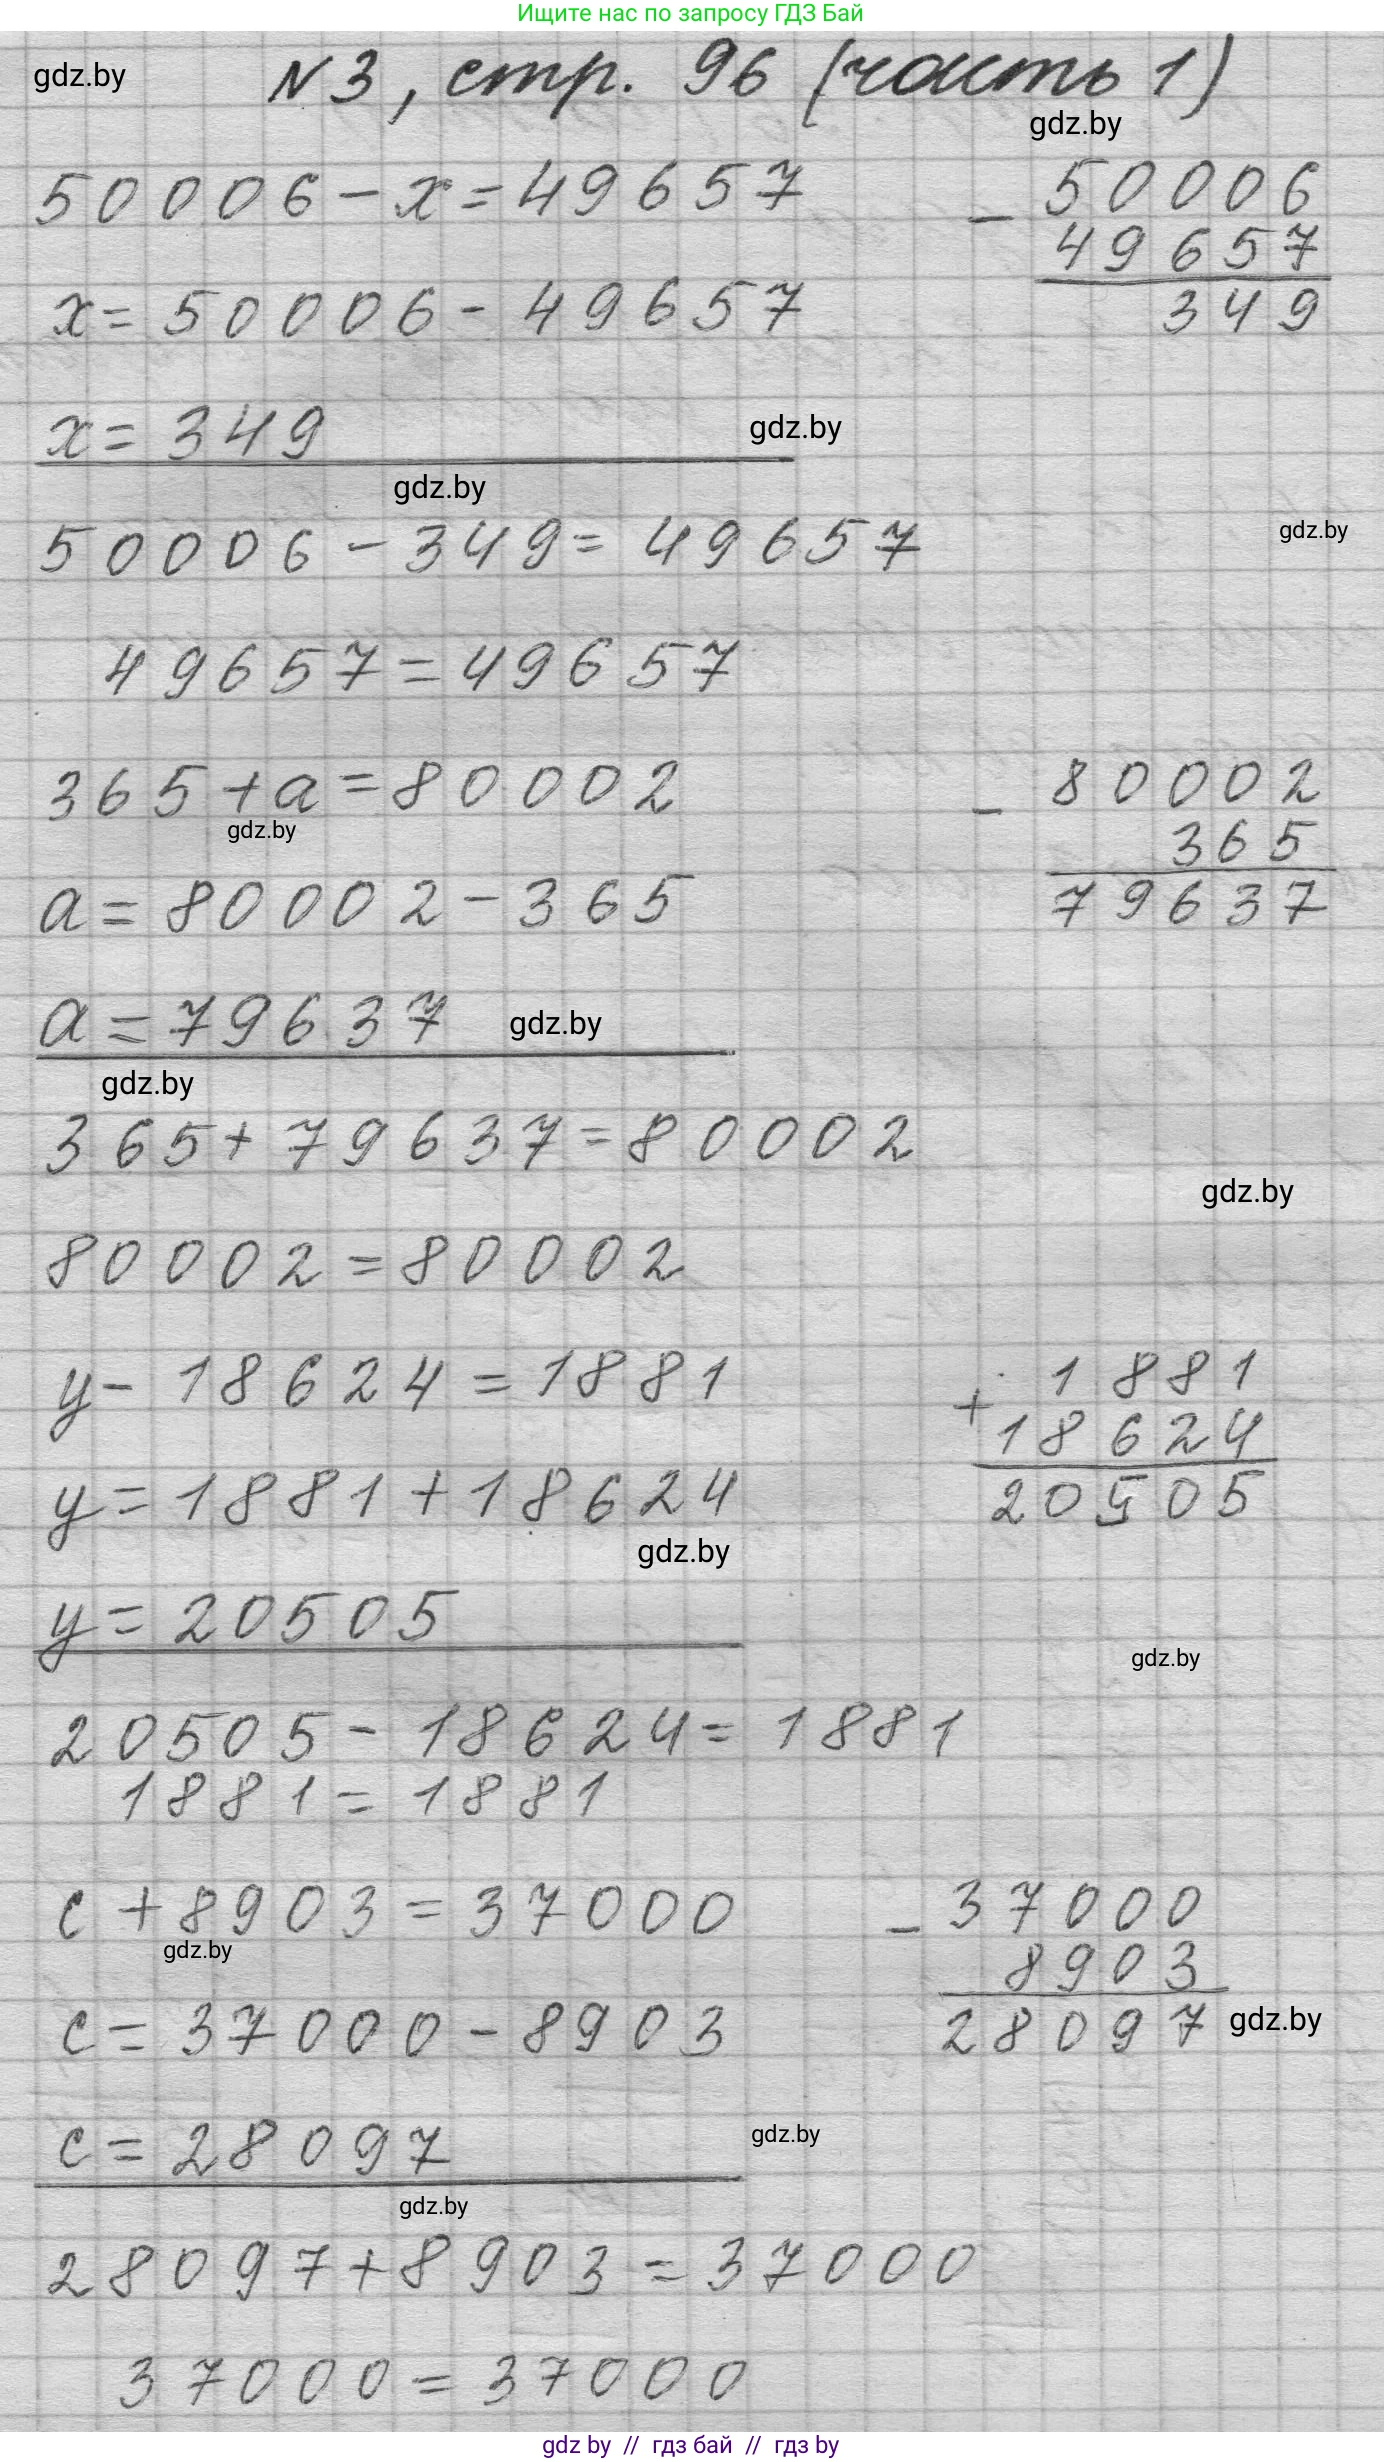 Ищите нас по запросу ГДЗ Бай
gdz.by
N 3, стр. 96 (часть 1)
gdz.by
50006 - x = 49657
- 50006
49657
349
x = 50006 - 49657
x = 349
gdz.by
gdz.by
50006 - 349 = 49657
gdz.by
49657 = 49657
365 + a = 80002
gdz.by
- 80002
365
79637
a = 80002 - 365
a = 79637
gdz.by
gdz.by
365 + 79637 = 80002
gdz.by
80002 = 80002
y - 18624 = 1881
+ 1881
18624
20505
y = 1881 + 18624
gdz.by
y = 20505
gdz.by
20505 - 18624 = 1881
1881 = 1881
c + 8903 = 37000
gdz.by
- 37000
8903
28097
gdz.by
c = 37000 - 8903
c = 28097
gdz.by
gdz.by
28097 + 8903 = 37000
37000 = 37000
gdz by // гдз бай // гдз by